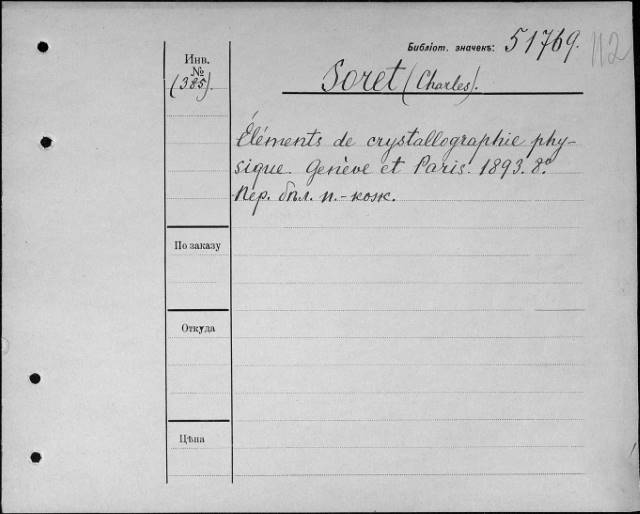 Библіот. значекъ: 51769. 112
Инв.
№
(385).
Soret (Charles).
Éléments de crystallographie phy-
sique. Genève et Paris. 1893. 8º.
Пер. бѣл. п.-кож.
По заказу
Откуда
Цѣна